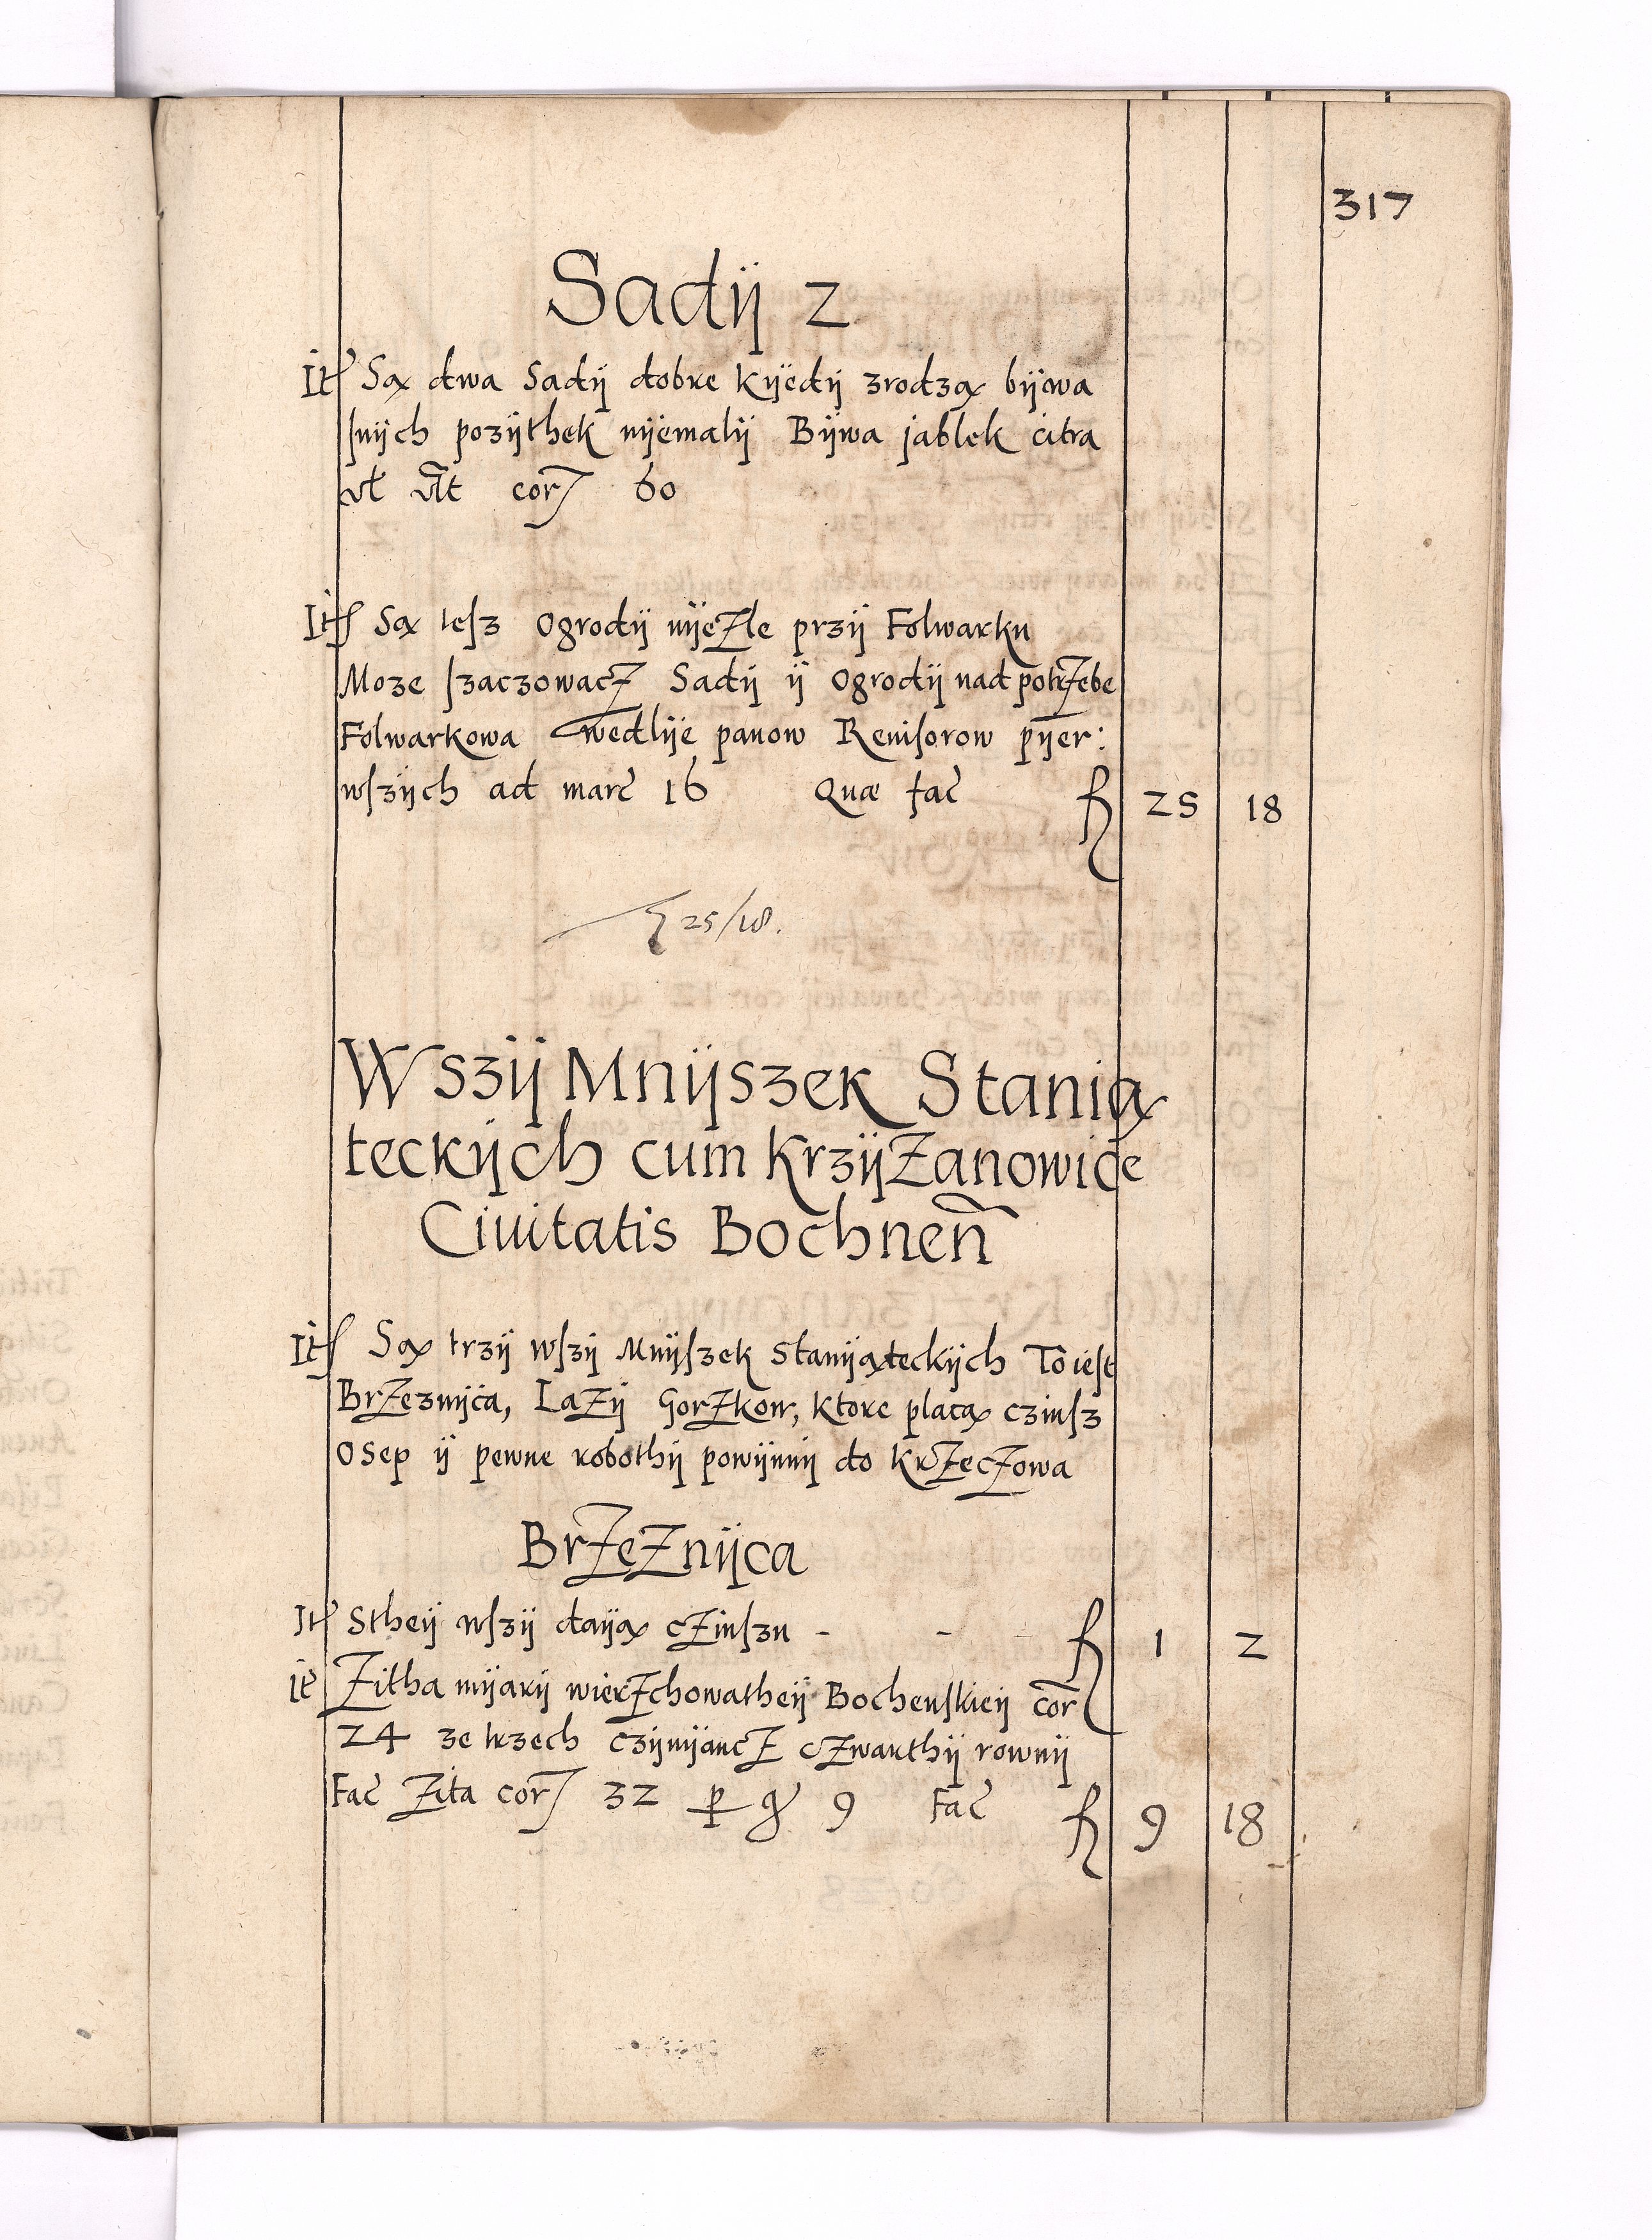 317
Sadÿ 2
It Są dwa Sadÿ dobre kÿedÿ zrodzą bÿwa
snÿch pozÿthek nÿemalÿ Bÿwa jablek citra
vl vlt cor 60
It Są tesz Ogrodÿ nÿeZle przÿ Folwarku
Moze szaczowacZ Sadÿ ÿ Ogrodÿ nad potrZebe
Folwarkowa wedlÿe panow Reuisorow pÿer:
wszÿch ad marc 16 Quæ fac f 25 18
25/18.
Wszÿ Mnÿszek Stanią
teckÿch cum KrzÿZanowice
Ciuitatis Bochnen
It Są trzÿ wszÿ Mnÿszek Stanÿąteckÿch To iest
BrZeznÿca, LaZÿ GorZkow, ktore placą czinsz
Osep ÿ pewne robothÿ powÿnnÿ do KrZecZowa
BrZeZnÿca
It Stheÿ wszÿ daÿą cZinszu - - f 1 2
it Zitha mÿarÿ wierZchowatheÿ Bochenskieÿ cor
24 ze trzech czÿnÿancZ cZwarthÿ rownÿ
Fac Zita cor 32 p gr 9 Fac f 9 18